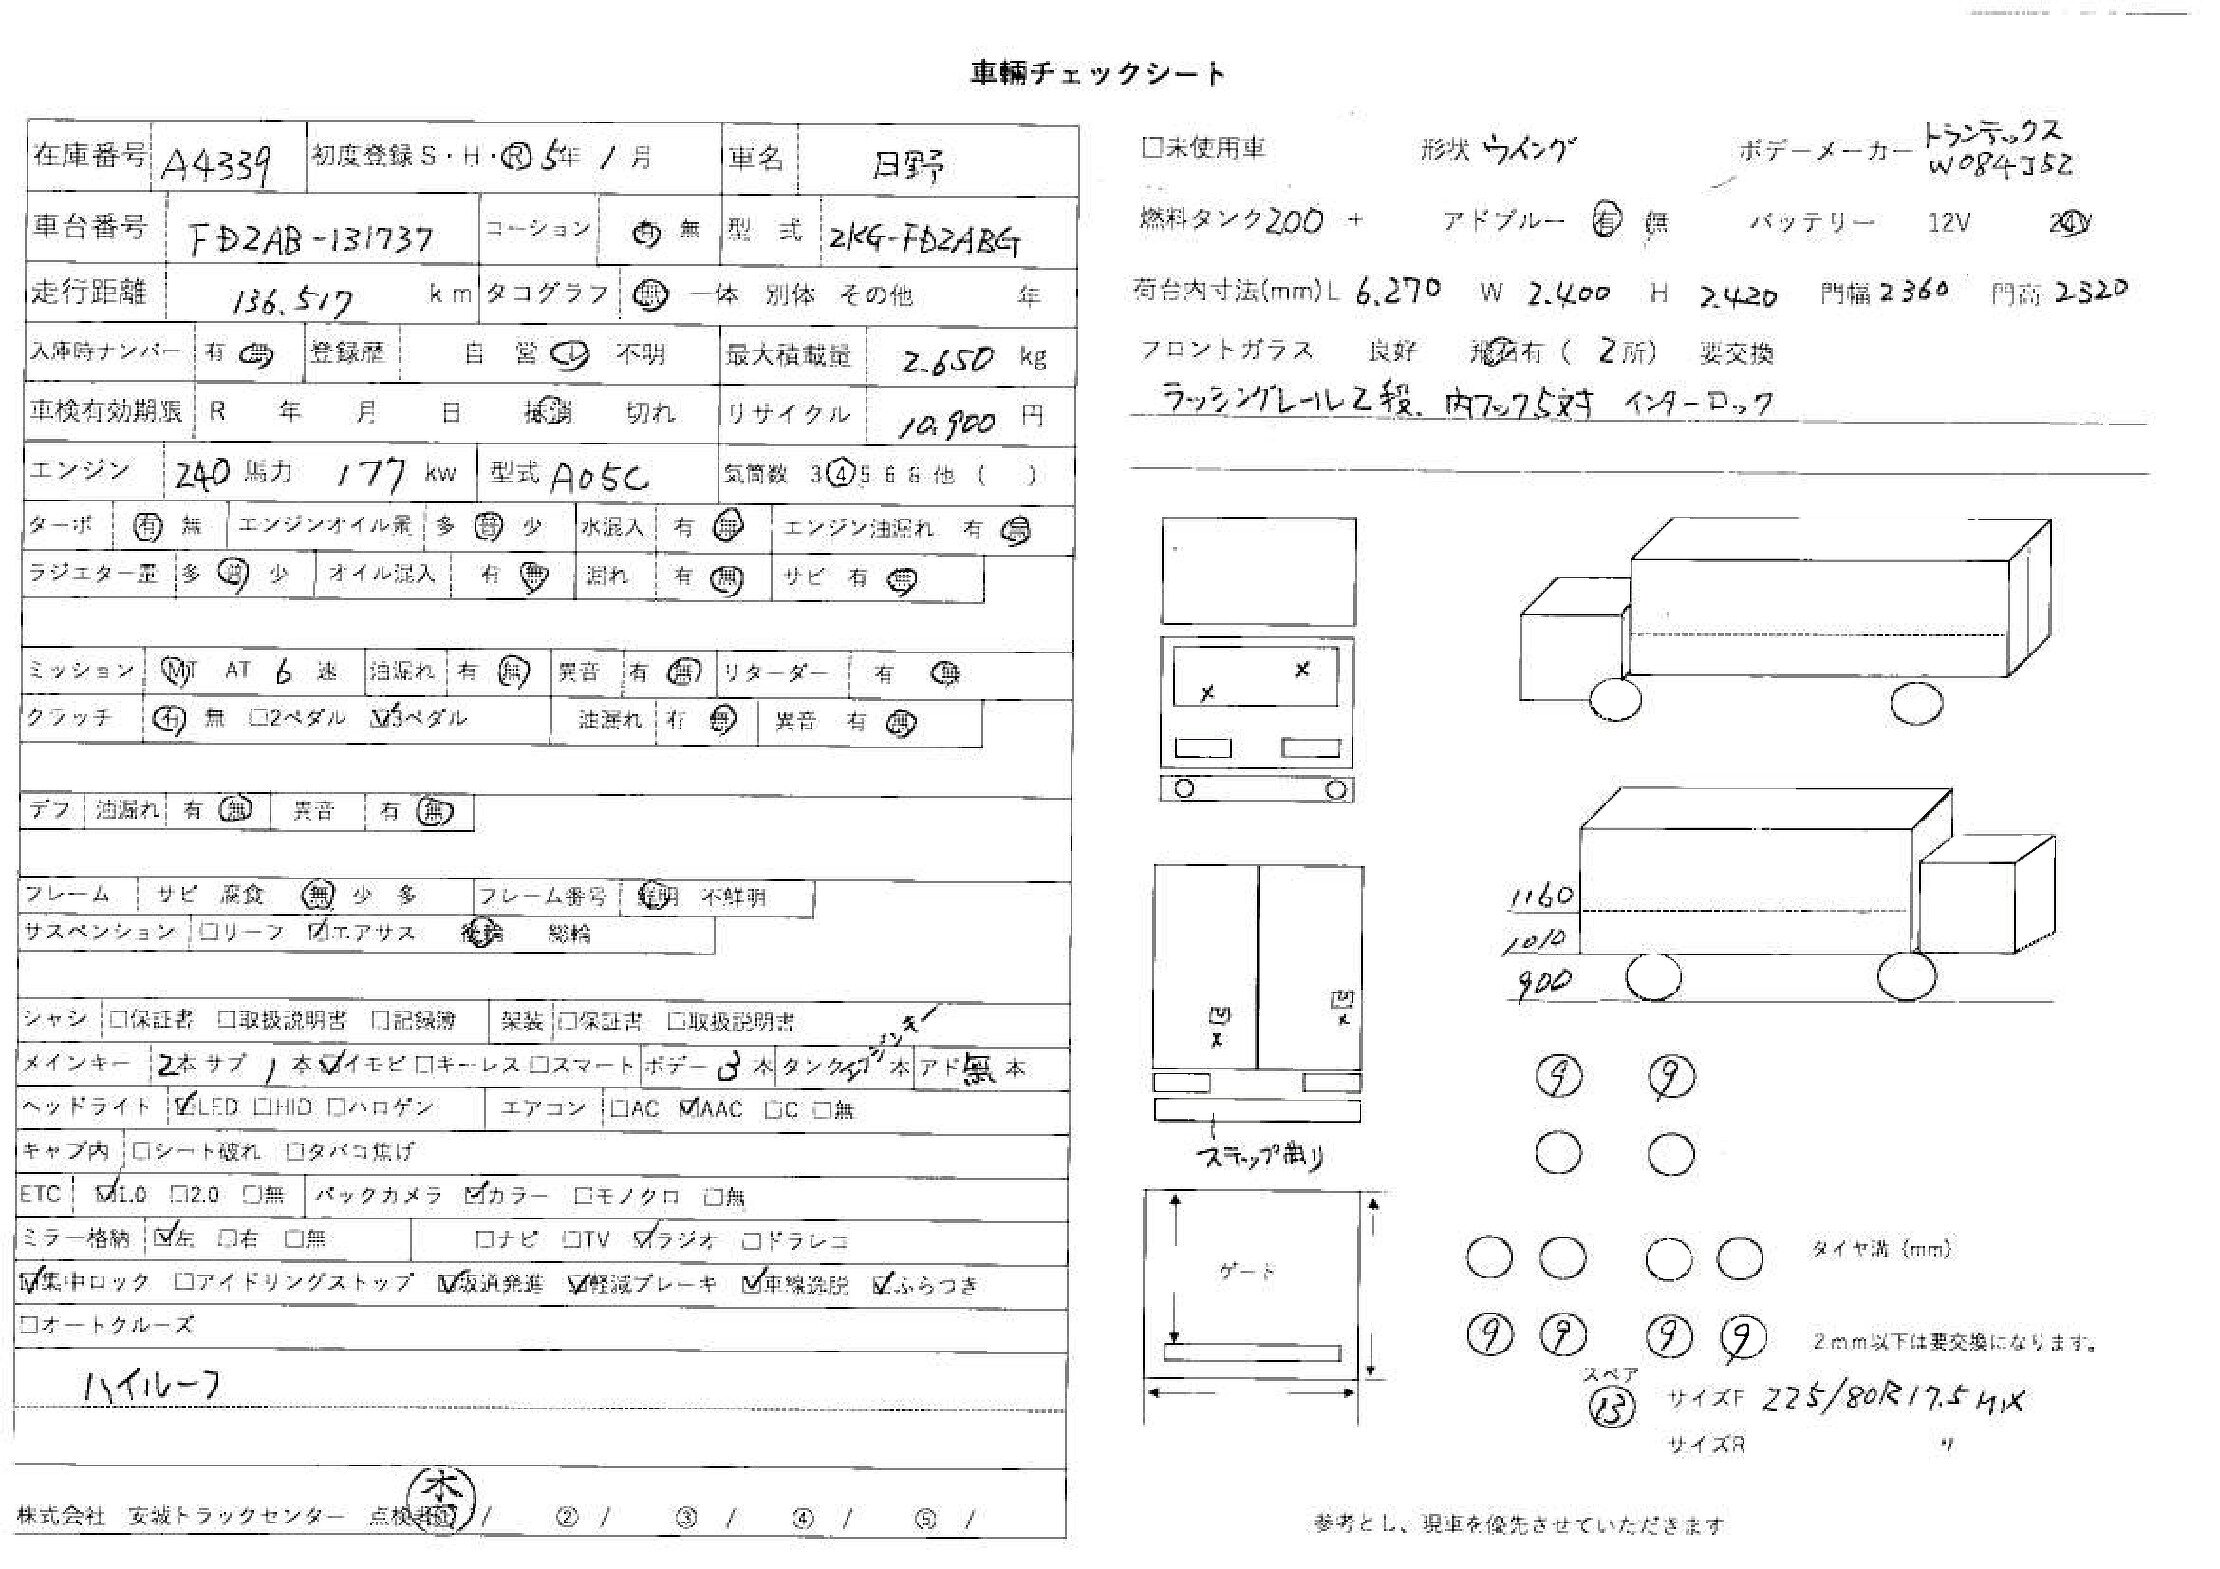 車輛チェックシート
在庫番号 A4339 初度登録 S・H・R 5年 1月 車名 日野
車台番号 FD2AB-131737 コーション 有 無 型 式 2KG-FD2ABG
走行距離 136.517 km タコグラフ 無 一体 別体 その他 年
入庫時ナンバー 有 無 登録歴 自 営 不明 最大積載量 2.650 kg
車検有効期限 R 年 月 日 抹消 切れ リサイクル 10.900 円
エンジン 240 馬力 177 kw 型式 A05C 気筒数 3 4 5 6 8 他 ( )
ターボ 有 無 エンジンオイル量 多 普 少 水混入 有 無 エンジン油漏れ 有 無
ラジエター量 多 普 少 オイル混入 有 無 漏れ 有 無 サビ 有 無
ミッション MT AT 6 速 油漏れ 有 無 異音 有 無 リターダー 有 無
クラッチ 有 無 □2ペダル ☑3ペダル 油漏れ 有 無 異音 有 無
デフ 油漏れ 有 無 異音 有 無
フレーム サビ 腐食 無 少 多 フレーム番号 鮮明 不鮮明
サスペンション □リーフ ☑エアサス 後輪 総輪
シャシ □保証書 □取扱説明書 □記録簿 架装 □保証書 □取扱説明書
メインキー 2本 サブ 1本 ☑イモビ □キーレス □スマート ボデー 3 本 タンク 本 アド 無 本
エンジンキー
ヘッドライト ☑LED □HID □ハロゲン エアコン □AC ☑AAC □C □無
キャブ内 □シート破れ □タバコ焦げ
ETC ☑1.0 □2.0 □無 バックカメラ ☑カラー □モノクロ □無
ミラー格納 ☑左 □右 □無 □ナビ □TV ☑ラジオ □ドラレコ
☑集中ロック □アイドリングストップ ☑坂道発進 ☑軽減ブレーキ ☑車線逸脱 ☑ふらつき
□オートクルーズ
ハイルーフ
株式会社 安城トラックセンター 点検者① / ② / ③ / ④ / ⑤ /
木
□未使用車 形状 ウイング ボデーメーカー トランテックス
W084J52
燃料タンク 200 + アドブルー 有 無 バッテリー 12V 24V
荷台内寸法(mm) L 6.270 W 2.400 H 2.420 門幅 2360 門高 2320
フロントガラス 良好 飛石有 ( 2所) 要交換
ラッシングレール2段. 内フック5対 インターロック
1160
1010
900
凹 ×
凹 ×
ステップ曲り
ゲート
9 9
タイヤ溝 (mm)
9 9 9 9 2mm以下は要交換になります。
スペア
13 サイズF 225/80R17.5 MIX
サイズR 〃
参考とし、現車を優先させていただきます